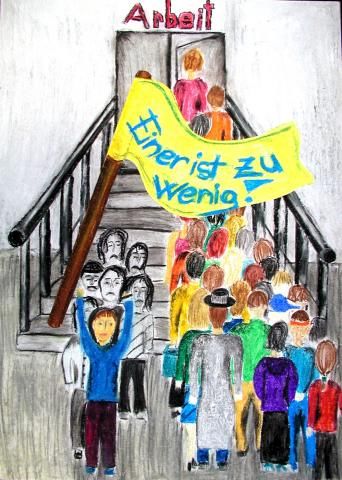 Arbeit
Einer ist zu
wenig!